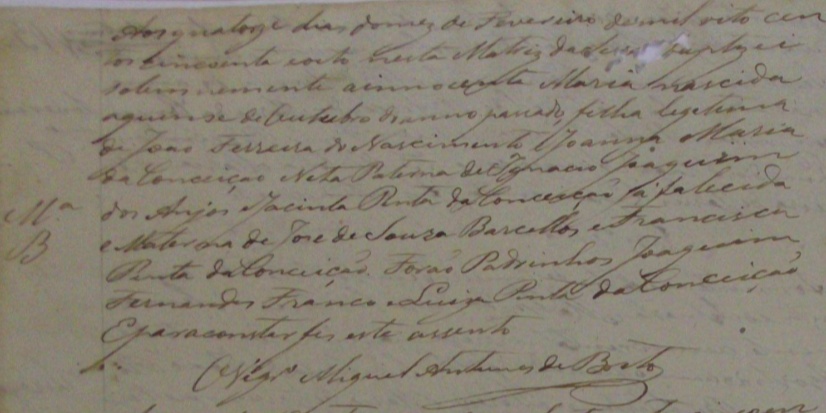 Aos quatorze dias do mez de Fevereiro de mil oito cen
tos cincoenta e oito nesta Matriz da baptizei
solemnemente a innocente Maria nascida
a quinse de Outubro do anno passado, filha legitima
de João Ferreira do Nascimento e Joanna Maria
da Conceição Neta Paterna de Ignacio Joaquim
dos Anjos e Jacinta Ritta da Conceição já falecida
e Materna de José de Souza Barcellos e Francisca
Ritta da Conceição. Forão Padrinhos Joaquim
Fernandes Franco e Luiza Ritta da Conceição
E para constar fis este assento
M.ª
B
O Vigr.º Miguel Antunes de Brito